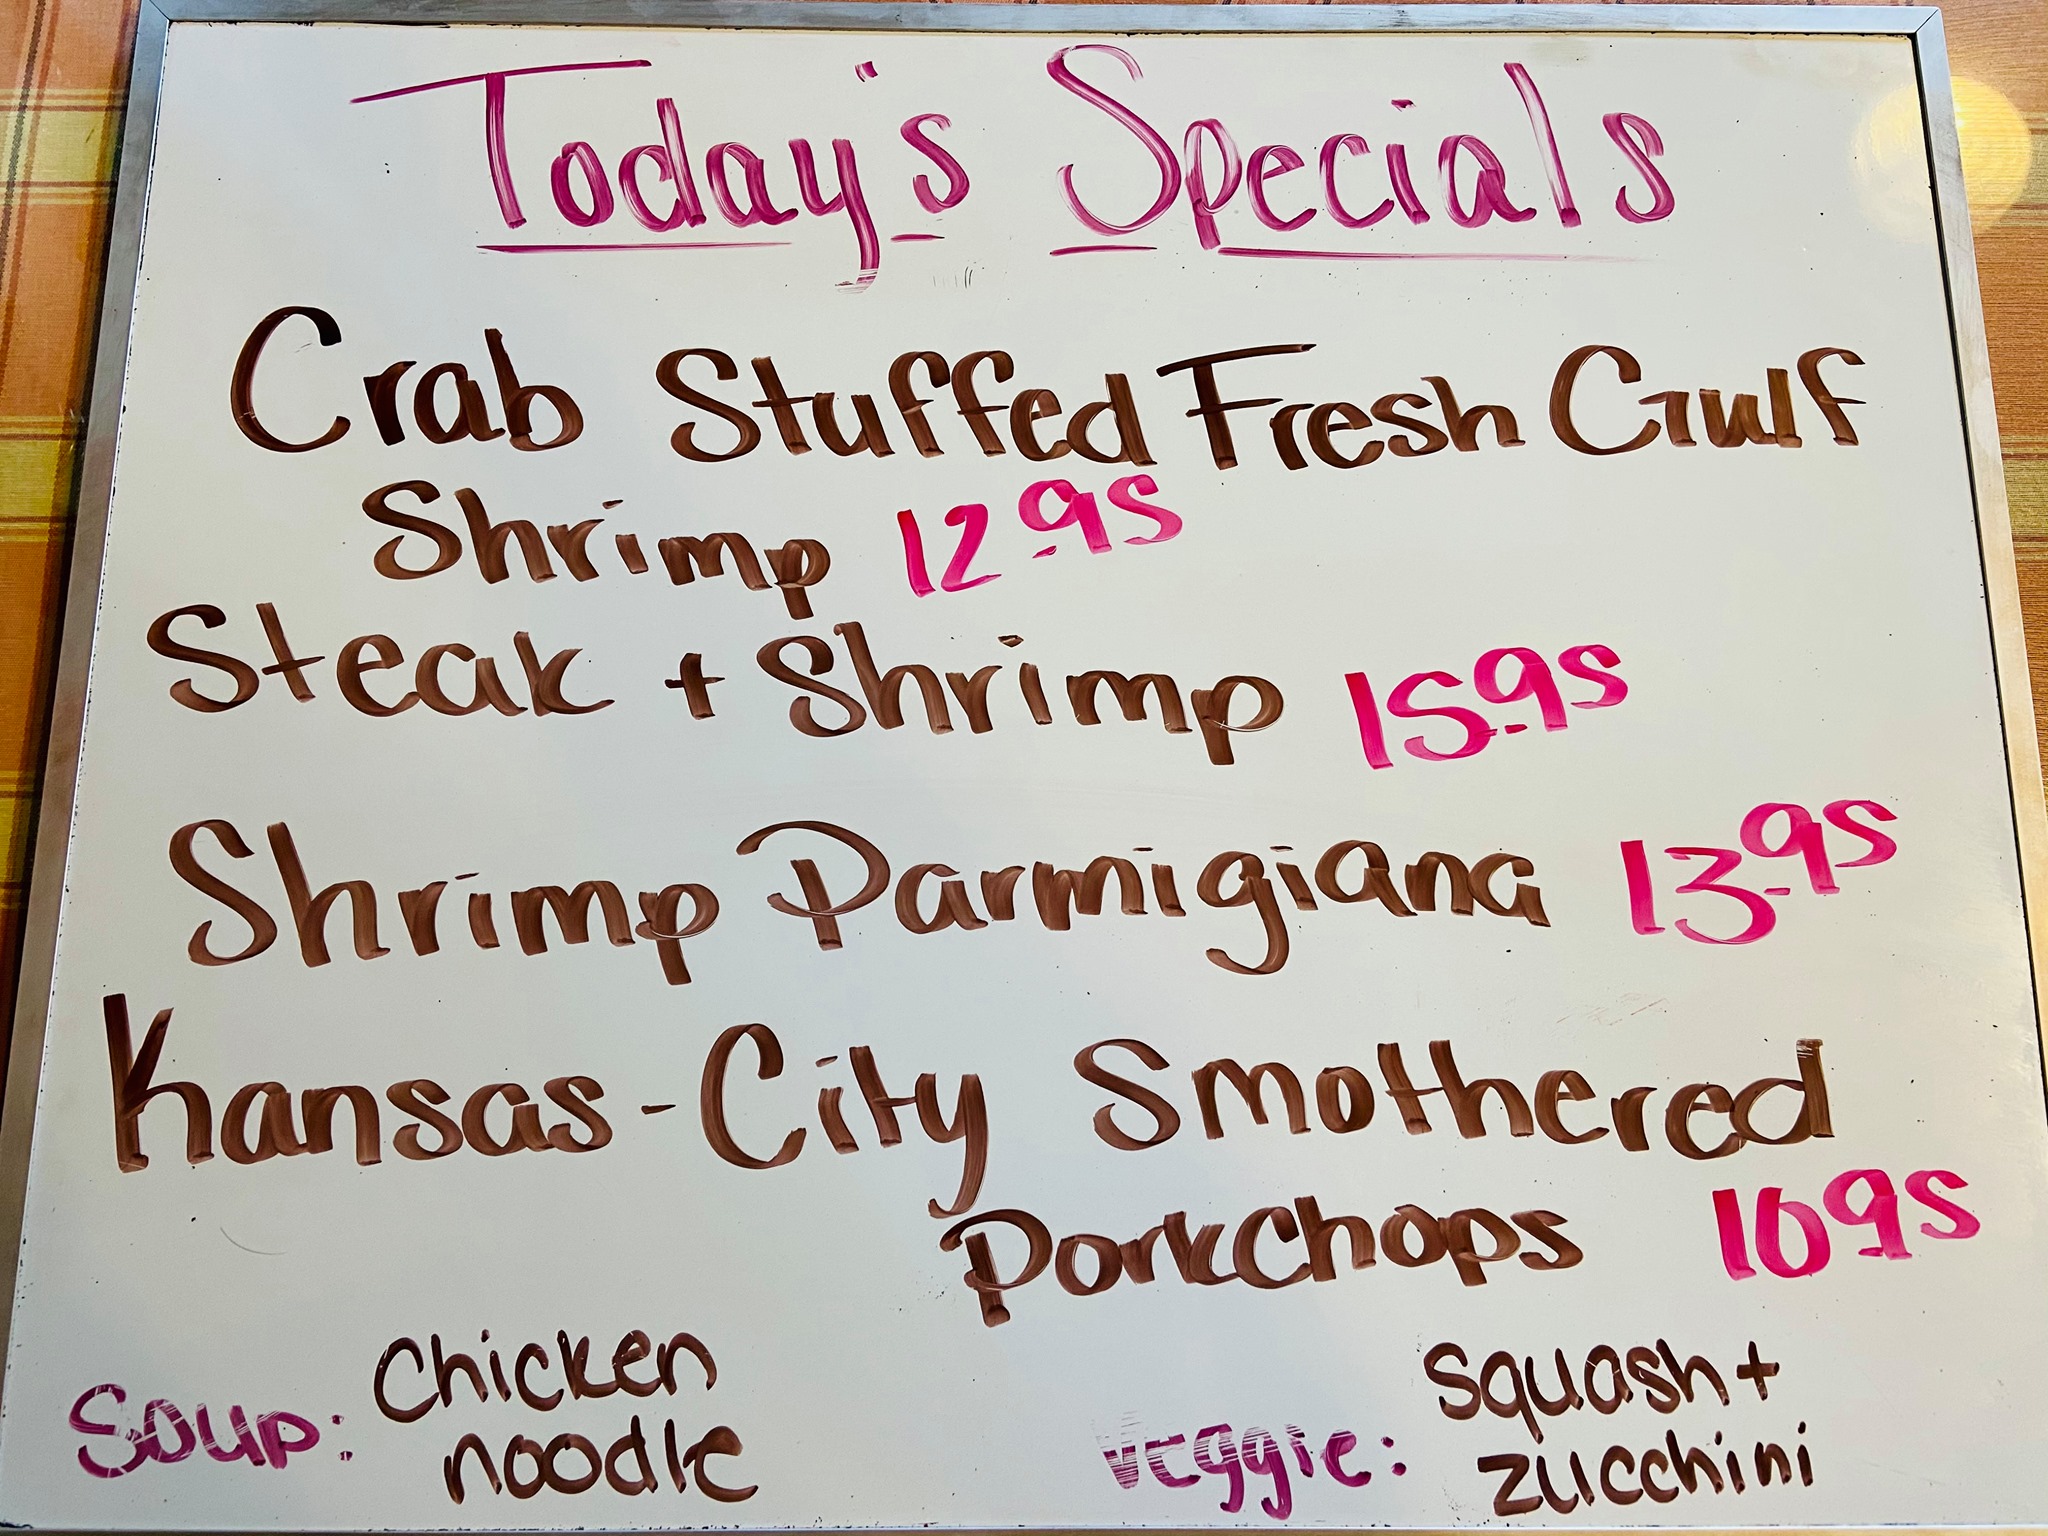 Today's Specials
Crab Stuffed Fresh Gulf
Shrimp 12.95
Steak + Shrimp 15.95
Shrimp Parmigiana 13.95
Kansas-City Smothered
PorkChops 10 95
Chicken
Soup: noodle
Squash +
Veggie: zucchini